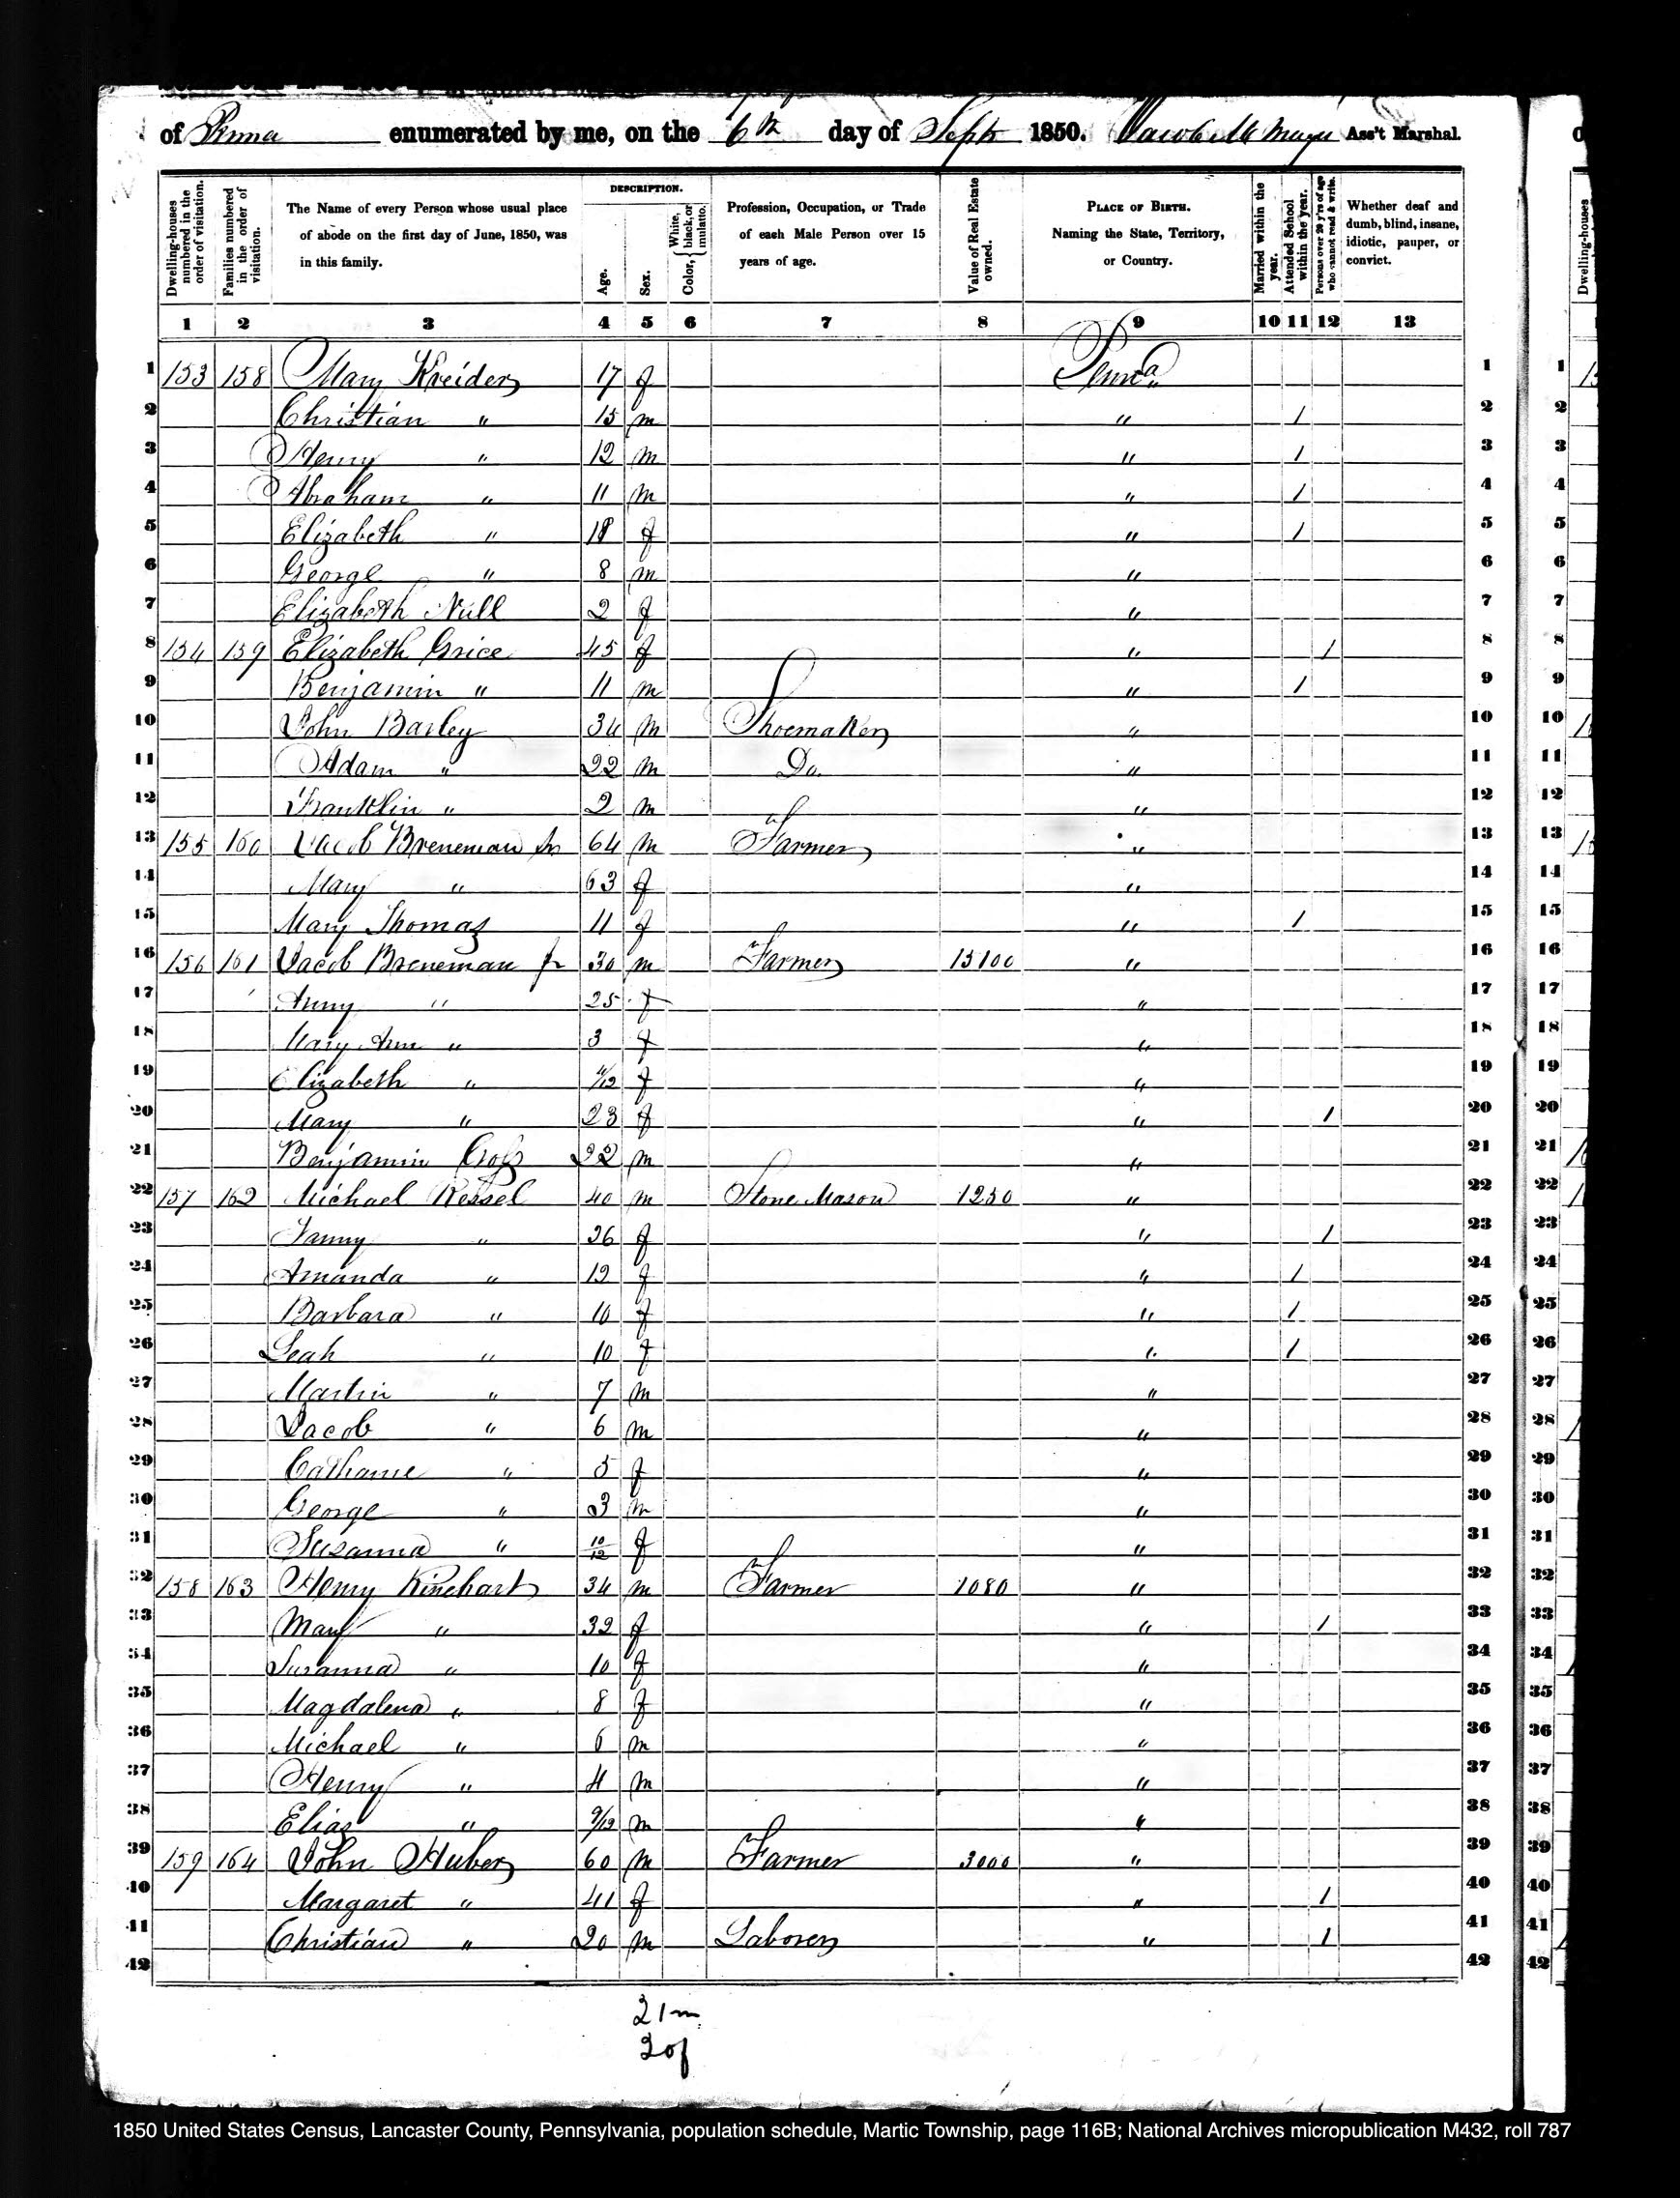 of Penna enumerated by me, on the 6th day of Septr 1850. Jacob M Ass't Marshal.
Dwelling-houses numbered in the order of visitation.
Families numbered in the order of visitation.
The Name of every Person whose usual place of abode on the first day of June, 1850, was in this family.
DESCRIPTION.
Age.
Sex.
Color, { White, black, or mulatto.
Profession, Occupation, or Trade of each Male Person over 15 years of age.
Value of Real Estate owned.
PLACE OF BIRTH. Naming the State, Territory, or Country.
Married within the year.
Attended School within the year.
Persons over 20 y'rs of age who cannot read & write.
Whether deaf and dumb, blind, insane, idiotic, pauper, or convict.
Dwelling-houses
1 2 3 4 5 6 7 8 9 10 11 12 13
1 153 158 Mary Kreider 17 f Penna 1
2 Christian " 15 m " 1 2
3 Henry " 12 m " 1 3
4 Abraham " 11 m " 1 4
5 Elizabeth " f " 1 5
6 George " 8 m " 6
7 Elizabeth Null 2 f " 7
8 154 159 Elizabeth Grice 45 f " 1 8
9 Benjamin " 11 m " 1 9
10 John Barley 34 m Shoemaker " 10
11 Adam " 22 m Do. " 11
12 Franklin " 2 m " 12
13 155 160 Jacob Breneman Sr 64 m Farmer " 13
14 Mary " 63 f " 14
15 Mary Thomas 11 f " 1 15
16 156 161 Jacob Breneman Jr 30 m Farmer 15100 " 16
17 Anny " 25 f " 17
18 Mary Ann " 3 f " 18
19 Elizabeth " /12 f " 19
20 Mary " 23 f " 1 20
21 Benjamin 22 m " 21
22 157 162 Michael Kessel 40 m Stone Mason 1250 " 22
23 Fanny " 36 f " 1 23
24 Amanda " 12 f " 1 24
25 Barbara " 10 f " 1 25
26 Leah " 10 f " 1 26
27 Martin " 7 m " 27
28 Jacob " 6 m " 28
29 Catharine " 5 f " 29
30 George " 3 m " 30
31 Susanna " 10/12 f " 31
32 158 163 Henry Rinehart 34 m Farmer 1080 " 32
33 Mary " 32 f " 1 33
34 Susanna " 10 f " 34
35 Magdalena " 8 f " 35
36 Michael " 6 m " 36
37 Henry " 4 m " 37
38 Elias " 9/12 m " 38
39 159 164 John Huber 60 m Farmer 3000 " 39
40 Margaret " 41 f " 1 40
41 Christian " 20 m Laborer " 1 41
42 42
21 m
20 f
1850 United States Census, Lancaster County, Pennsylvania, population schedule, Martic Township, page 116B; National Archives micropublication M432, roll 787